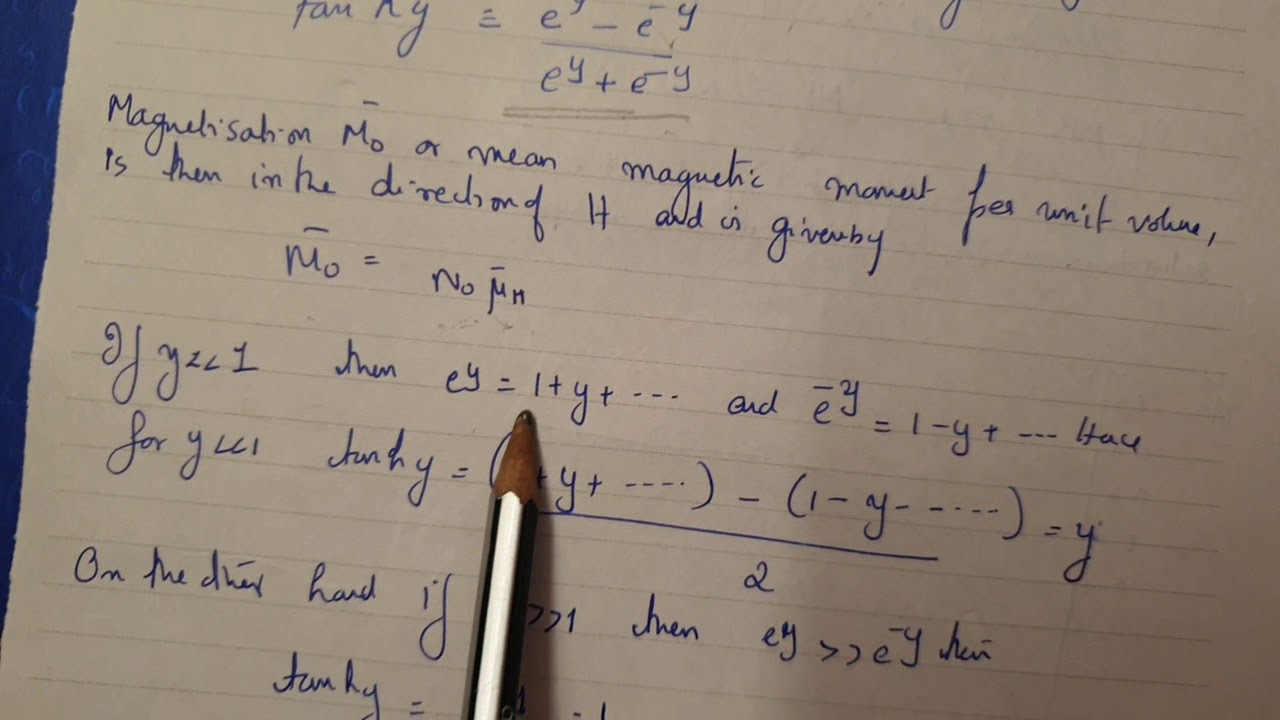 tan hy = e^y - e^-y
e^y + e^-y
Magnetisation M̄o or mean magnetic moment per unit volume,
is then in the direction of H and is given by
M̄o = No μ̄H
If y<<1 then e^y = 1+y+ --- and e^-y = 1-y+ ---
for y<<1 tanhy = ( +y+ ----) - (1-y- -----) = y
2
On the other hand if >>1 then e^y >> e^-y then
tanhy =